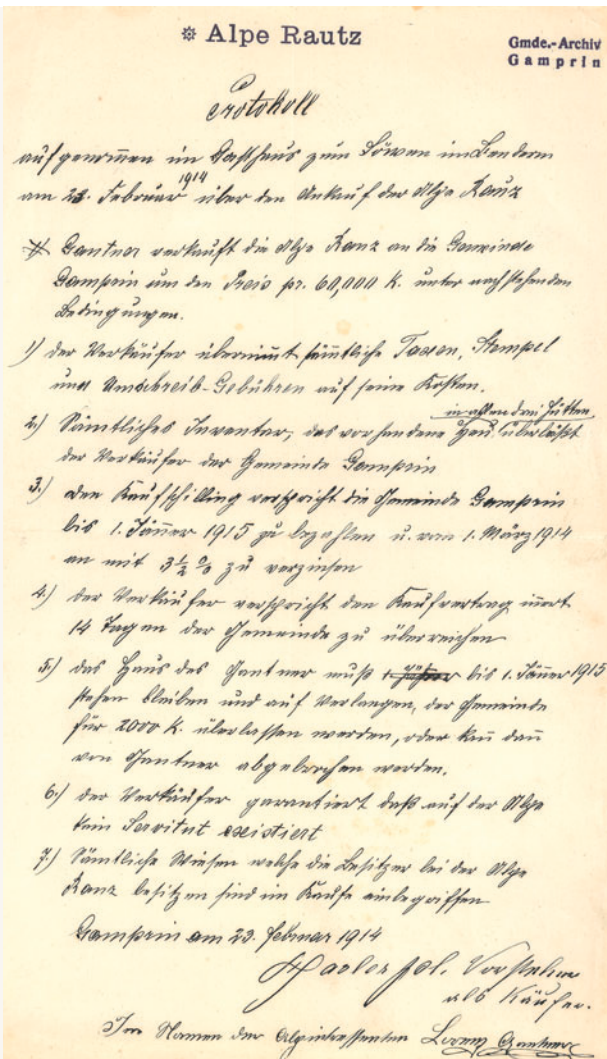 ❊ Alpe Rautz
Gmde.-Archiv
Gamprin
Protokoll
aufgenommen im Gasthaus zum Löwen in Bendern
am 23. Februar 1914 über den Ankauf der Alpe Rauz
Gantner verkauft die Alpe Rauz an die Gemeinde
Gamprin um den Preis pr. 60,000 K. unter nachstehenden
Bedingungen.
1) der Verkäufer übernimmt sämtliche Taxen, Stempel
und Umschreib-Gebühren auf seine Kosten.
in allen drei Hütten
2.) Sämtliches Inventar, das vorhandene Heu, überläßt
der Verkäufer der Gemeinde Gamprin
3.) den Kaufschilling verspricht die Gemeinde Gamprin
bis 1. Jänner 1915 zu bezahlen u. vom 1. März 1914
an mit 3½ % zu verzinsen
4.) der Verkäufer verspricht den Kaufvertrag innert
14 Tagen der Gemeinde zu überreichen
5.) das Haus des Gantner muß bis 1. Jänner 1915
stehen bleiben und auf Verlangen, der Gemeinde
für 2000 K. überlassen werden, oder kann dann
von Gantner abgebrochen werden.
6.) der Verkäufer garantiert daß auf der Alpe
kein Servitut existiert
7.) Sämtliche Wiesen welche die Besitzer bei der Alpe
Rauz besitzen sind im Kaufe einbegriffen
Gamprin am 23. Februar 1914
Hasler Vorsteher
als Käufer.
Im Namen der Alpinteressenten Lorenz Gantner